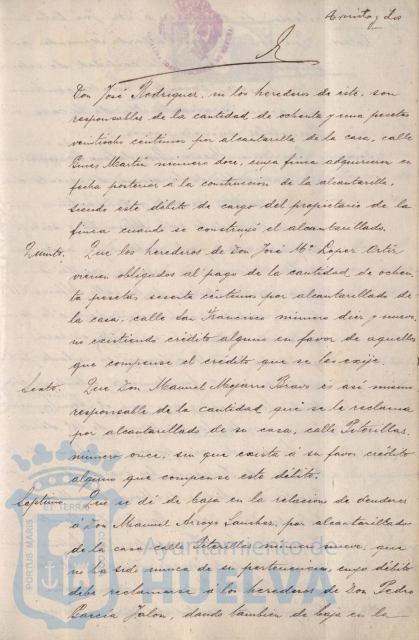 treinta y dos
Don José Rodriguez, ni los herederos de este, son
responsables de la cantidad de ochenta y una pesetas
veintiocho céntimos por alcantarilla de la casa, calle
Ginés Martín número doce, cuya finca adquirieron en
fecha posterior á la construcción de la alcantarilla,
siendo este débito de cargo del propietario de la
finca cuando se construyó el alcantarillado.
Quinto. Que los herederos de Don José Mª Lopez Ortiz
vienen obligados al pago de la cantidad de ochen-
ta pesetas sesenta céntimos por alcantarillado de
la casa, calle San Francisco número diez y nueve,
no existiendo crédito alguno en favor de aquellos
que compense el crédito que se les exije.
Sexto. Que Don Manuel Mojarro Bravo es así mismo
responsable de la cantidad que se le reclama
por alcantarillado de su casa, calle Puterillas,
número once, sin que exista á su favor crédito
alguno que compense este débito.
Septimo. Que se dé de baja en la relacion de deudores
á Don Manuel Arroyo Sanchez, por alcantarillado
de la casa calle Puterillas número nueve, que
no ha sido nunca de su pertenencia, cuyo débito
debe reclamarse á los herederos de Don Pedro
Garcia Jalon, dando tambien de baja en la
PORTUS MARIS
ET TERRÆ
Ayuntamiento de
HUELVA